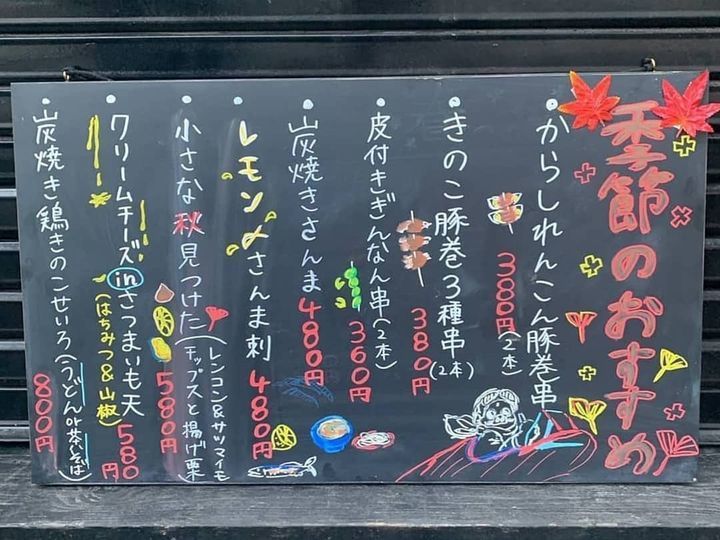 季節のおすすめ
・からしれんこん豚巻串
380円(2本)
・きのこ豚巻3種串
380円(2本)
・皮付きぎんなん串(2本)
360円
・炭焼きさんま480円
・レモン〆さんま刺
480円
・小さな秋見つけた(レンコン&サツマイモ
チップスと揚げ栗)
580円
・クリームチーズinさつまいも天
(はちみつ&山椒)
580円
・炭焼き鶏きのこせいろ(うどんor茶そば)
800円